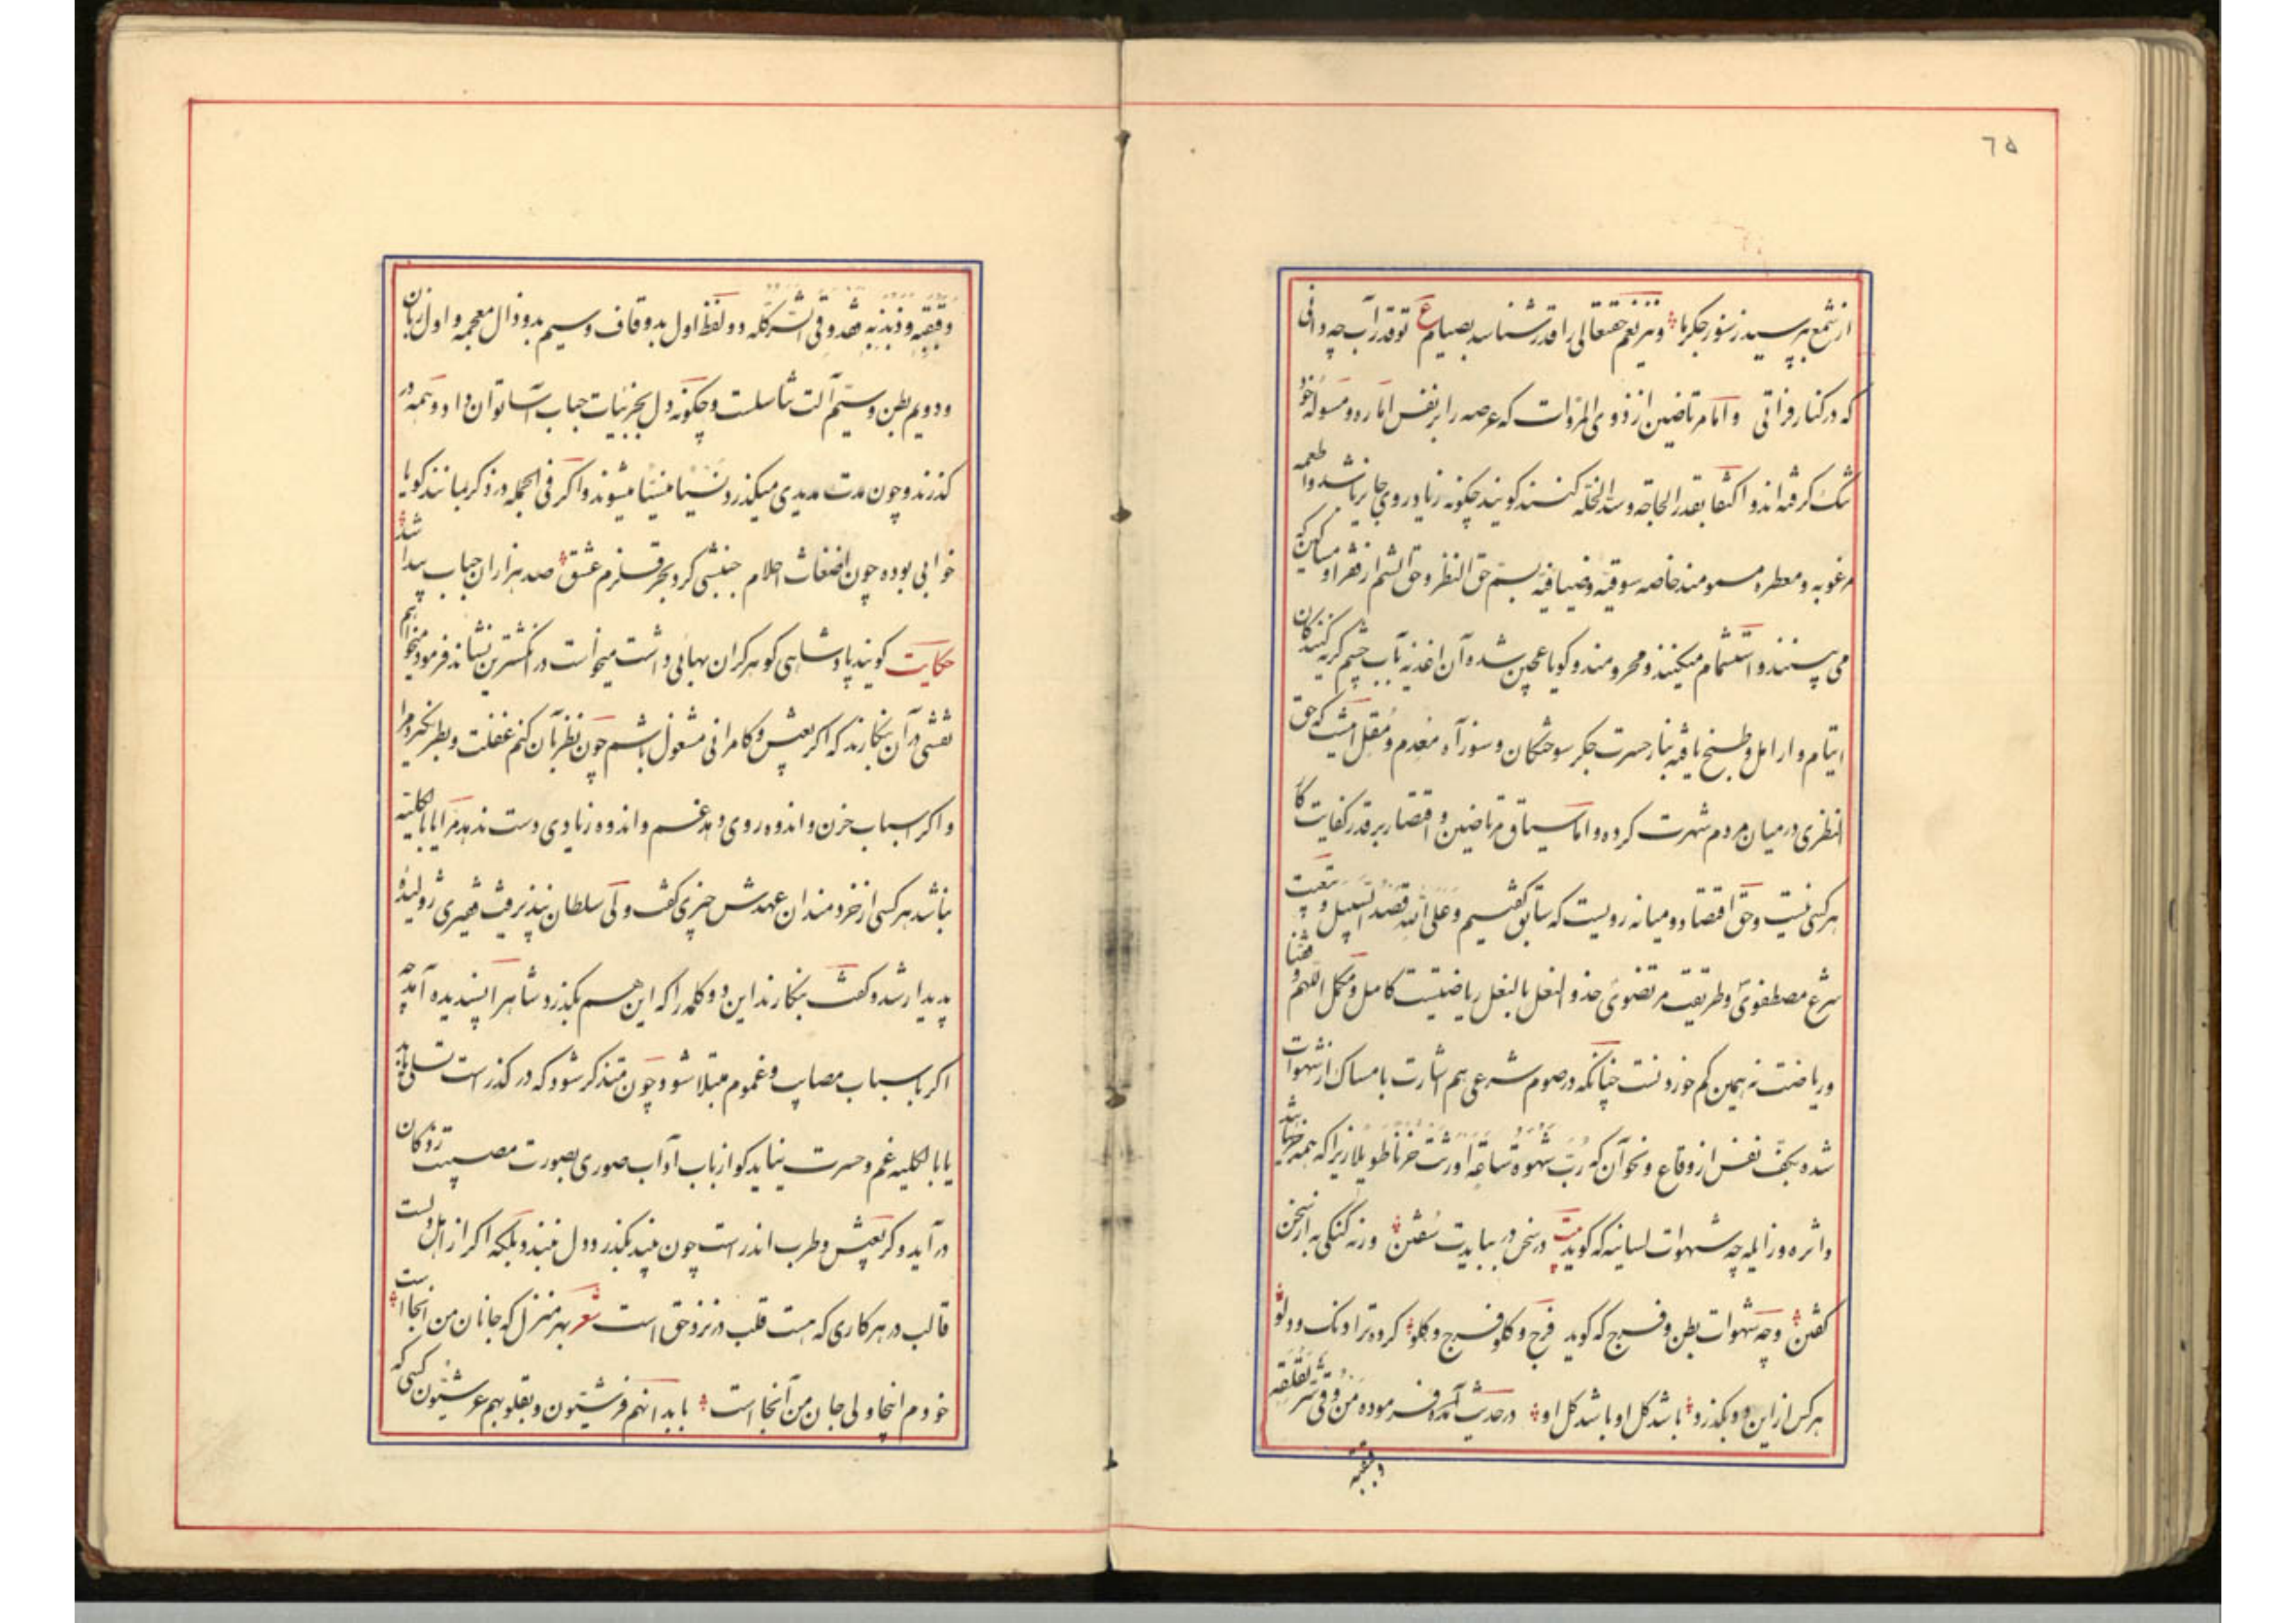 ٦٥
از شمع بپرسید ز سوز جگر ما و نیز نعم حقتعالی را قدر شناسد بصیام ع تو قدر آب چه دانی
که در کنار فراتی و اما مرتاضین از ذوی المروات که عرصه را بر نفس اماره و مسوله خود
تنک کرفته‌اند و اکتفا بقدر الحاجه و سد الخله کنند کویند چکونه زیاد روی جایز باشد و اطعمه
مرغوبه و معطره مسمومند خاصه سوقیه و ضیافیه بسم حق النظر و حق الشم از فقرا و مساکین که
می‌بینند و استشمام میکنند و محرومند و کویا عجین شده آن اغذیه بآب چشم کریه کنندکان
ایتام و ارامل و طبخ یافته بنار حسرت جکر سوختکان و سوز آه معدم و مقل امت که حق
النظری در میان مردم شهرت کرده و اما سیاق مرتاضین و اقتصار بر قدر کفایت کار
هر کسی نیست و حق اقتصاد و میانه رویست که سابق کفتیم و علی الله قصد السبیل و تبعیت
شرع مصطفوی و طریقت مرتضوی حذو النعل بالنعل ریاضتیست کامل و مکمل اللهم وفقنا
و ریاضت نه همین کم خوردنست چنانکه در صوم شرعی هم اشارت بامساک از شهوات
شده بکف نفس از وقاع و نحو آن که رب شهوة ساعة اورثت حزنا طویلا زیرا که همه خسران باشد
و اثره و زایله چه شهوات لسانیه که کوید بیت در سخن در ببایدت سفتن ورنه کنکی به از سخن
کفتن و چه شهوات بطن و فرج که کوید فرج و کلو فرج و کلو کرده ترا دنک و دولو
هر کس از این دو بکذرد باشد کل او باشد کل او در حدیث آمده فرموده من وقی شر لقلقه
و قبقبه
و قبقبه و ذبذبه فقد وقی الشر کله دو لفظ اول بدو قاف و سیم بدو ذال معجمه و اول زبان
و دویم بطن و سیم آلت تناسلست و چکونه دل بجزئیات حباب آسا توان داد و همه در
کذرند و چون مدت مدیدی میکذرد نسیا منسیا میشوند و اکر فی الجمله در ذکر بمانند کویا
خوابی بوده چون اضغاث احلام جنبشی کرد بحر قلزم عشق صد هزاران حباب پیدا شد
حکایت کویند پادشاهی کوهر کران بهائی داشت میخواست در انکشترین نشاند فرمود میخواهم
نقشی در آن بنکارند که اکر بعیش و کامرانی مشغول باشم چون نظر بآن کنم غفلت و بطر نکیرد مرا
و اکر اسباب حزن و اندوه روی دهد غم و اندوه زیادی دست ندهد مرا یا بالکلیه
نباشد هر کسی از خردمندان عهدش چیزی کفت ولی سلطان نپذیرفت فقیری ژولیده
پدیدار شد و کفت بنکارند این دو کلمه را که این هم بکذرد و شاه را پسندیده آمد چه
اکر باسباب مصایب و غموم مبتلا شود چون متذکر شود که در کذر است تسلی یابد
یا بالکلیه غم و حسرت نیاید کو از باب آداب صوری بصورت مصیبت زدکان
در آید و کر بعیش و طرب اندر است چون بیند بکذرد دل نبندد بلکه اکر از اهل دلست
قالب در هر کاری که هست قلب در نزد حق است شعر بهر منزل که جانان من آنجا است
خودم اینجا ولی جان من آنجا است بابدانهم فرشیون و بقلوبهم عرشیون کسی که